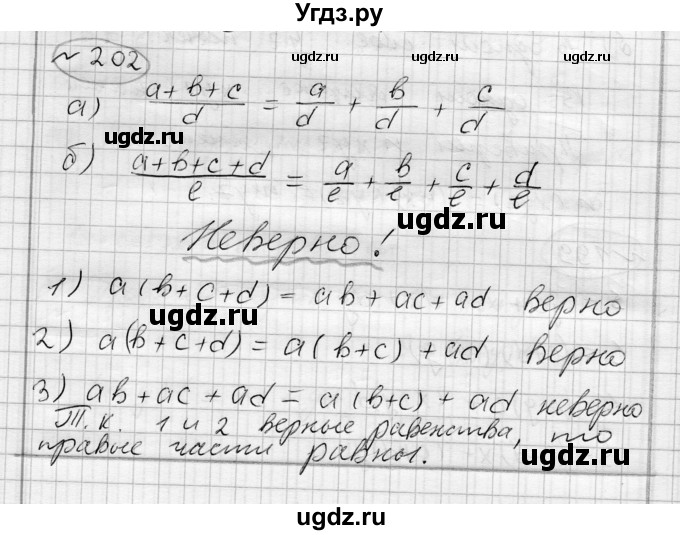 Угдз.ру
№ 202
ugdz.ru ugdz.ru
а) (a+b+c)/d = a/d + b/d + c/d
ugdz.ru ugdz.ru
б) (a+b+c+d)/e = a/e + b/e + c/e + d/e
ugdz.ru
Неверно!
1) a(b+c+d) = ab + ac + ad верно
ugdz.ru ugdz.ru
2) a(b+c+d) = a(b+c) + ad верно
3) ab+ac+ad = a(b+c) + ad неверно
Т.к. 1 и 2 верные равенства, то
ugdz.ru ugdz.ru
правые части равны.
ugdz.ru